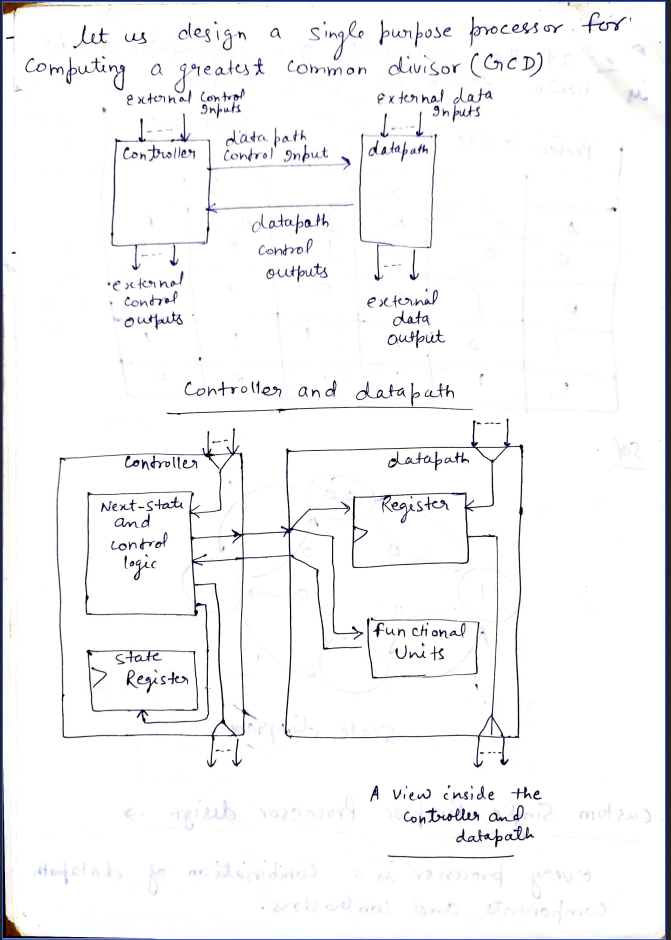 let us design a single purpose processor for
Computing a greatest common divisor (GCD)
external control
Inputs
external data
Inputs
Controller
datapath
Control Input
datapath
datapath
control
outputs
external
control
outputs
external
data
output
Controller and datapath
Controller
datapath
Next-State
and
control
logic
Register
State
Register
functional
Units
A view inside the
controller and
datapath